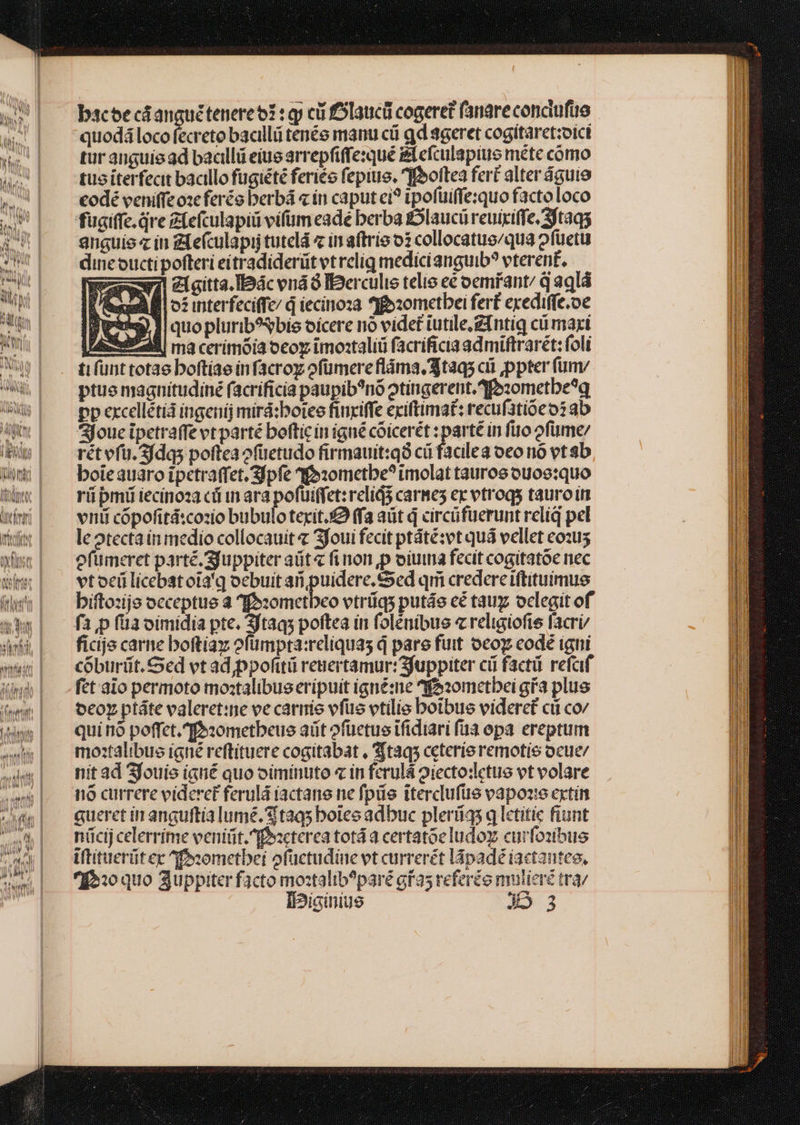 hac de cā anguē tenere dꝛ : ꝙ cū Glaucū cogeret sanare conclusus
quodā loco secreto bacillū tenēs manu cū qd ageret cogitaret: dici
tur anguis ad bacillū eius arrepsisse: quē Aesculapius mēte cōmo
tus īterfecit bacillo fugiētē feriēs sepius. Postea fert᷑ alter āguis
eodē venisse ore ferēs herbā ⁊ in caput eiꝰ īposuisse: quo facto loco
fugisse. q̄re Aesculapiū visum eadē herba Glaucū reuixisse. Itaqꝫ
anguis ⁊ in Aesculapij tutelā ⁊ in astris dꝛ collocatus/ qua ꝯsuetu
dine ducti posteri ei tradiderūt vt reliq medici anguibꝰ vterent᷑.
Agitta. Hāc vnā d Herculis telis eē demr̄ant/ q̄ aqlā
dꝛ interfecisse/ q̄ iecinora Promethei fert᷑ exedisse. de
quo pluribꝰ vbis dicere nō videt᷑ īutile. Antiq cū maxi
ma cerimōia deoꝝ īmortaliū sacrificia admīstrarēt: soli
ti sunt totas hostias in sacroꝝ ꝯsumere flāma. Itaqꝫ cū ꝓpter sum/
ptus magnitudinē sacrificia paupibꝰ nō ꝯtingerent. Prometheꝰ q
ꝓp excellētiā ingenij mirā: hoīes finxisse existimat᷑: recusatiōe dꝛ ab
Ioue īpetrasse vt partē hostie in ignē cōicerēt : partē in suo ꝯsume/
rēt vsu. Idqꝫ postea ꝯsuetudo firmauit: qd cū facile a deo nō vt ab
hoīe auaro īpetrasset. Ipse Prometheꝰ īmolat tauros duos: quo
rū pmū iecinora cū in ara posuisset: reliqꝫ carnes ex vtroqꝫ tauro in
vnū cōpositā: corio bubulo texit. Ossa aūt q̄ circūfuerunt reliq pel
le ꝯtecta in medio collocauit ⁊ Ioui fecit ptātē: vt quā vellet eorum
ꝯsumeret partē. Iuppiter aūt ⁊ si non ꝓ diuina fecit cogitatōe nec
vt deū licebat oīa q debuit añ puidere. Sed qm̄ credere īstituimus
histoꝛijs deceptus a Prometheo vtrūqꝫ putās eē tauꝝ delegit os
sa ꝓ sua dimidia pte. Itaqꝫ postea in solēnibus ⁊ religiosis sacri/
ficijs carne hostiaꝝ ꝯsumpta: reliquas q̄ pars fuit deoꝝ eodē igni
cōburūt. Sed vt ad ꝓpositū reuertamur: Iuppiter cū factū resciś
set aīo permoto mortalibus eripuit ignē: ne Promethei gr̄a plus
deoꝝ ptāte valeret: ne ve carnis vsus vtilis hoībus videret᷑ cū co/
qui nō posset. Prometheus aūt ꝯsuetus īsidiari sua opa ereptum
mortalibus ignē restituere cogitabat. Itaqꝫ ceteris remotis deue/
nit ad Iouis ignē quo diminuto ⁊ in ferulā ꝯiecto: letus vt volare
nō currere videret᷑ ferulā iactans ne spūs īterclusus vaporis extin
gueret in angustia lumē. Itaqꝫ hoīes adhuc plerūqꝫ q letitie fiunt
nūcij celerrime veniūt. Preterea totā a certatōe ludoꝝ cursoribus
īstituerūt ex Promethei ꝯsuetudine vt currerēt lāpadē iactantes.
Pro quo Iuppiter facto mortalibꝰ parē gr̄aꝫ referēs mulierē tra/
Higinius D 3